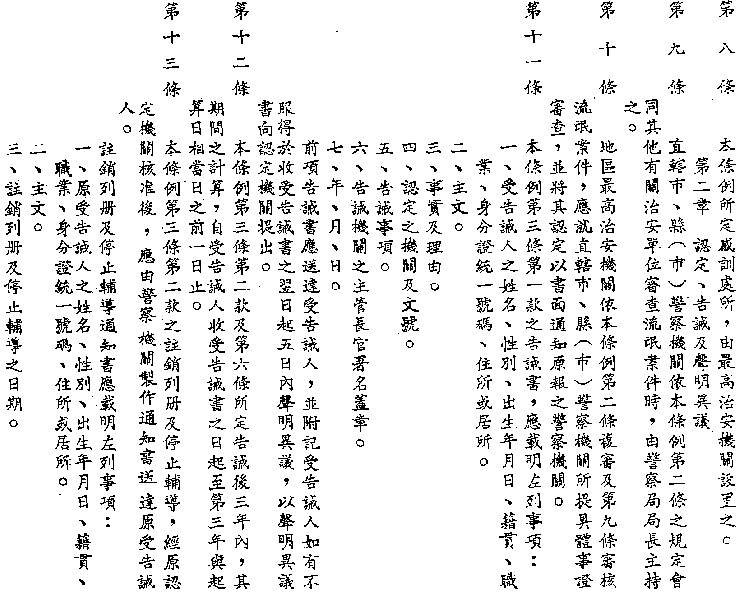 第八條　本條例所定感訓處所，由最高治安機關設置之。
第二章　認定、告誡及聲明異議
第九條　直轄市、縣（市）警察機關依本條例第二條之規定會
同其他有關治安單位審查流氓案件時，由警察局局長主持
之。
第十條　地區最高治安機關依本條例第二條複審及第九條審核
流氓案件，應就直轄市、縣（市）警察機關所提具體事證
審查，並將其認定以書面通知原報之警察機關。
第十一條　本條例第三條第一款之告誡書，應載明左列事項：
一、受告誡人之姓名、性別、出生年月日、籍貫、職
業、身分證統一號碼、住所或居所。
二、主文。
三、事實及理由。
四、認定之機關及文號。
五、告誡事項。
六、告誡機關之主管長官署名蓋章。
七、年、月、日。
前項告誡書應送達受告誡人，並附記受告誡人如有不
服得於收受告誡書之翌日起五日內聲明異議，以聲明異議
書向認定機關提出。
第十二條　本條例第三條第二款及第六條所定告誡後三年內，其
期間之計算，自受告誡人收受告誡書之日起至第三年與起
算日相當日之前一日止。
第十三條　本條例第三條第二款之註銷列册及停止輔導，經原認
定機關核准後，應由警察機關製作通知書送達原受告誡
人。
註銷列册及停止輔導通知書應載明左列事項：
一、原受告誡人之姓名、性別、出生年月日、籍貫、
職業、身分證統一號碼、住所或居所。
二、主文。
三、註銷列册及停止輔導之日期。